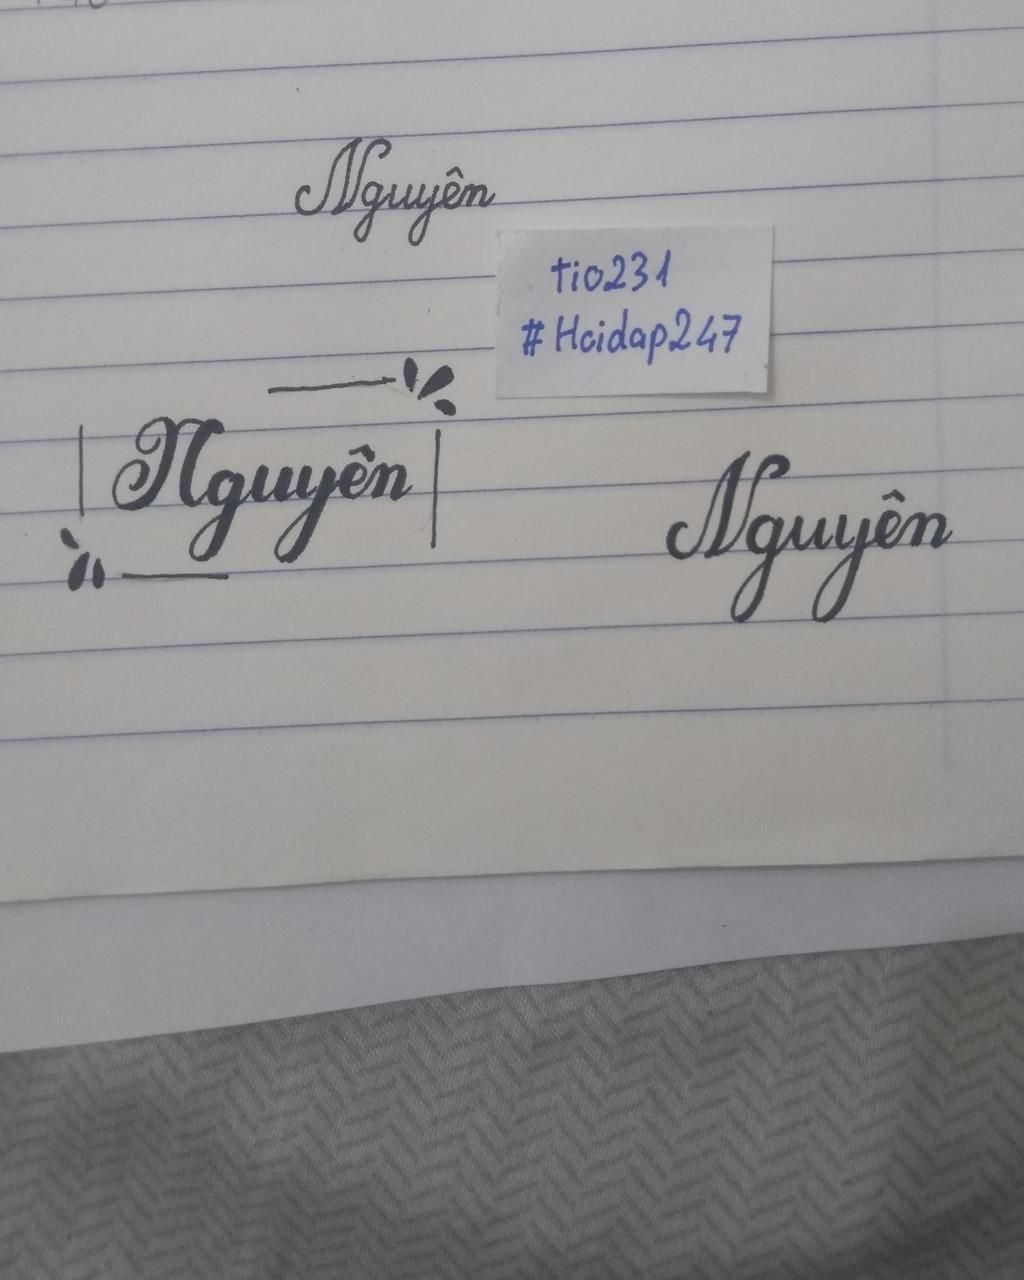 Nguyên
tio231
#Hoidap247
Nguyên
Nguyên